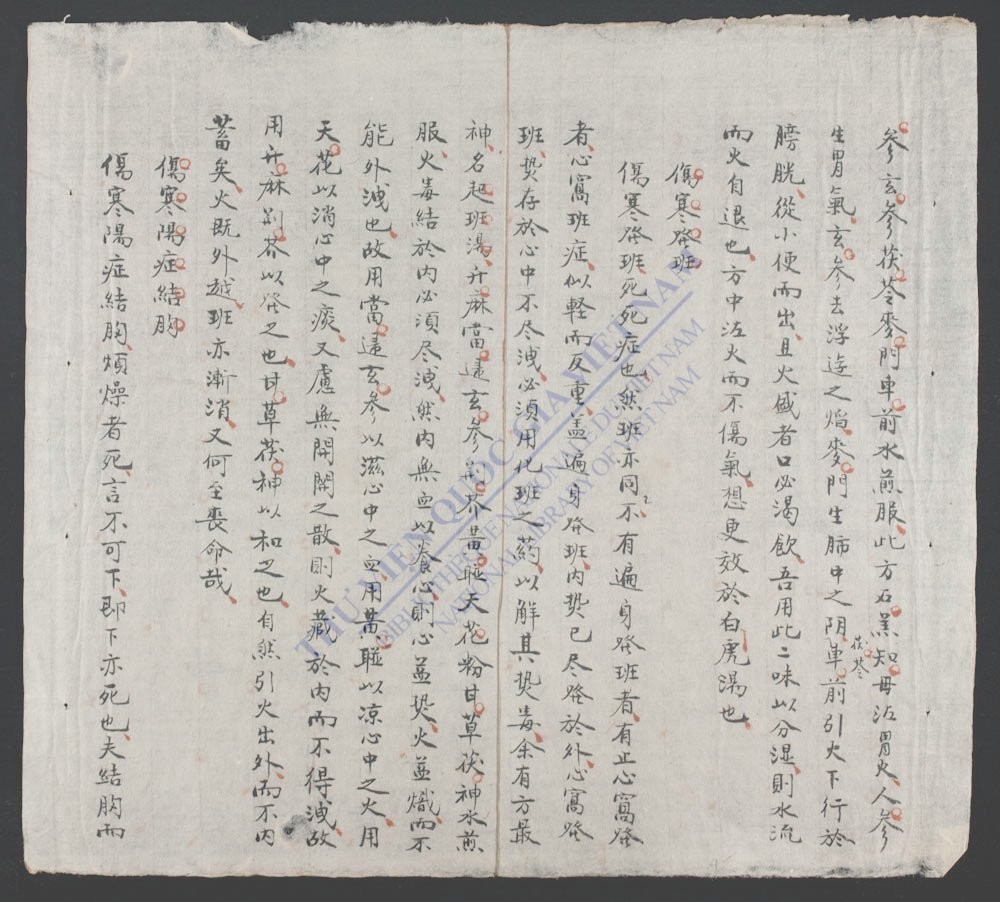 參玄參茯苓麥門車前水煎服此方石羔知母泻胃火人參
生胃氣玄參去浮遊之焰麥門生肺中之阴車前茯苓引火下行於
膀胱從小便而出且火盛者口必渴飲吾用此二味以分湿則水流
而火自退也方中泻火而不傷氣想更效於白虎湯也
傷寒發班
傷寒發班死症也然班亦同不有遍身發班者有止心窩發
者心窩班症似軽而反重盖遍身發班内热已尽發於外心窩發
班热存於心中不尽洩必須用化班之药以解其热毒余有方最
神名起班湯升麻當归玄參荆芥黄連天花粉甘草茯神水煎
服火毒結於内必須尽洩然内無血以养心則心益热火益熾而不
能外洩也故用當归玄參以滋心中之血用黄連以凉心中之火用
天花以消心中之痰又慮無開関之散則火藏於内而不得洩故
用升麻荆芥以發之也甘草茯神以和之也自然引火出外而不内
蓄矣火既外越班亦漸消又何至喪命哉
傷寒陽症結胸
傷寒陽症結胸煩燥者死言不可下即下亦死也夫結胸而
THƯ VIỆN QUỐC GIA VIỆT NAM
BIBLIOTHÈQUE NATIONALE DU VIETNAM
NATIONAL LIBRARY OF VIETNAM